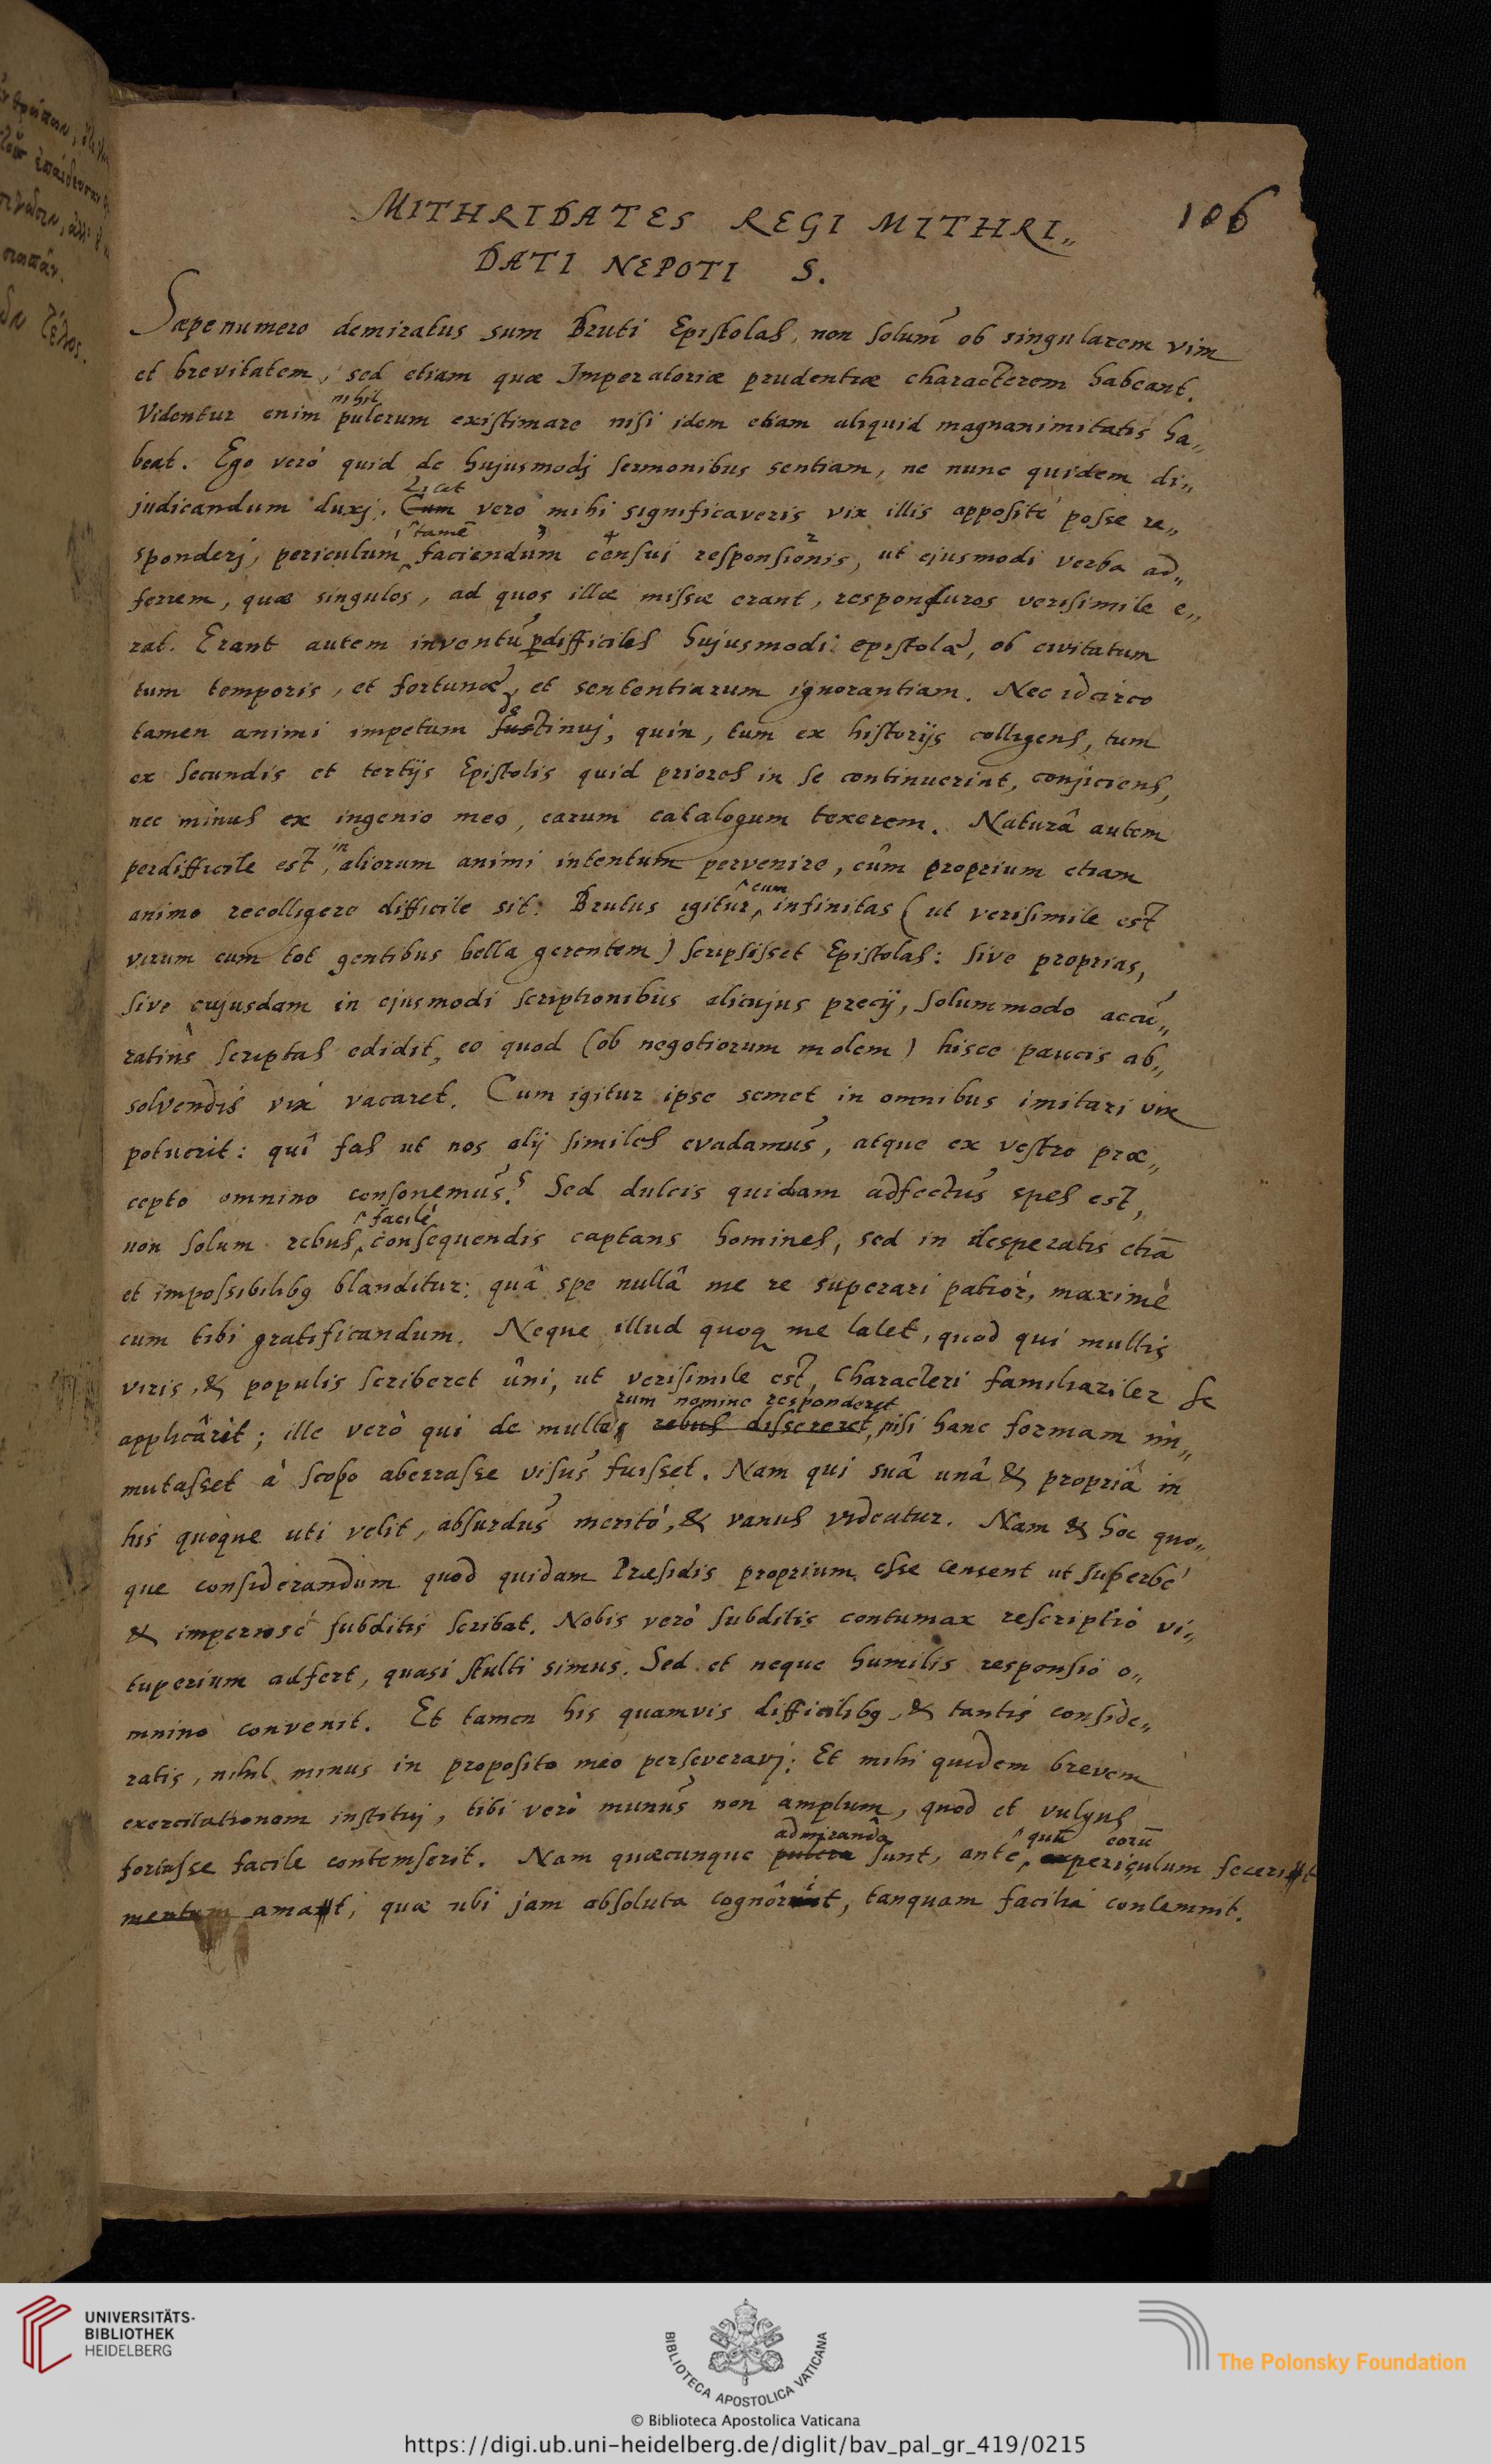 106
MITHRIDATES REGI MITHRI„
DATI NEPOTI S.
Sæpenumero demiratus sum Bruti Epistolas, non solum ob singularem vim
et brevitatem, sed etiam quæ Imperatoriæ prudentiæ characterem habeant.
nihil
Videntur enim pulcrum existimare nisi idem etiam aliquid magnanimitatis ha„
beat. Ego verò quid de hujusmodj sermonibus sentiam, ne nunc quidem di„
Licet
judicandum duxj. Cum vero mihi significaveris vix illis appositè posse re„
1 tamē 3 4 2
sponderj, periculum faciendum censui responsionis, ut ejusmodi verba ad„
ferrem, quæ singulos, ad quos illæ missæ erant, responsuros verisimile e„
rat. Erant autem inventu perdifficiles hujusmodi epistolæ, ob civitatum
tum temporis, et fortunæ, et sententiarum ignorantiam. Nec idcirco
de
tamen animi impetum sustinuj, quin, tum ex historijs colligens, tum
ex secundis et tertijs Epistolis quid priores in se continuerint, conjiciens,
nec minus ex ingenio meo, earum catalogum texerem. Naturâ autem
in
perdifficile est, aliorum animi intentum pervenire, cûm proprium etiam
cum
animo recolligere difficile sit. Brutus igitur, infinitas (ut verisimile est
virum cum tot gentibus bella gerentem) scripsisset Epistolas: sive proprias,
sive cujusdam in ejusmodi scriptionibus alicujus precij, solummodo accu„
ratiùs scriptas edidit, eo quod (ob negotiorum molem) hisce paucis ab„
solvendis vix vacaret. Cum igitur ipse semet in omnibus imitari vix
potuerit: quî fas ut nos alij similes evadamus, atque ex vestro præ„
cepto omnino consonemus? Sed dulcis quidam adfectus spes est,
facilè
non solum rebus consequendis captans homines, sed in desperatis etiā
et impossibilibꝯ blanditur: quâ spe nullâ me re superari patior, maximè
cum tibi gratificandum. Neque illud quoq me latet, quod qui multis
viris, & populis scriberet ûni, ut verisimile est, Characteri familiariter se
rum nomine responderet
applicârit; ille verò qui de multis rebus dissereret, nisi hanc formam im„
mutasset à scopo aberrasse visus fuisset. Nam qui suâ unâ & propriâ in
his quoque uti velit, absurdus meritò, & vanus videatur. Nam & hoc quo„
que considerandum quod quidam Præsidis proprium esse censent ut superbè
& imperiosè subditis scribat. Nobis verò subditis contumax rescriptio vi„
tuperium adfert, quasi stulti simus. Sed et neque humilis responsio o„
mnino convenit. Et tamen his quamvis difficilibꝯ, & tantis conside„
ratis, nihil minus in proposito meo perseveravj: Et mihi quidem brevem
exercitationem instituj, tibi verò munus non amplum, quod et vulgus
admiranda quā eorū
fortasse facile contemserit. Nam quæcunque pulcra sunt, antè, experiçulum fecerint
mentum amant, quæ ubi jam absoluta cognôrit, tanquam facilia contemnit.
UNIVERSITÄTS-
BIBLIOTHEK
HEIDELBERG
BIBLIOTECA APOSTOLICA VATICANA
© Biblioteca Apostolica Vaticana
The Polonsky Foundation
https://digi.ub.uni-heidelberg.de/diglit/bav_pal_gr_419/0215